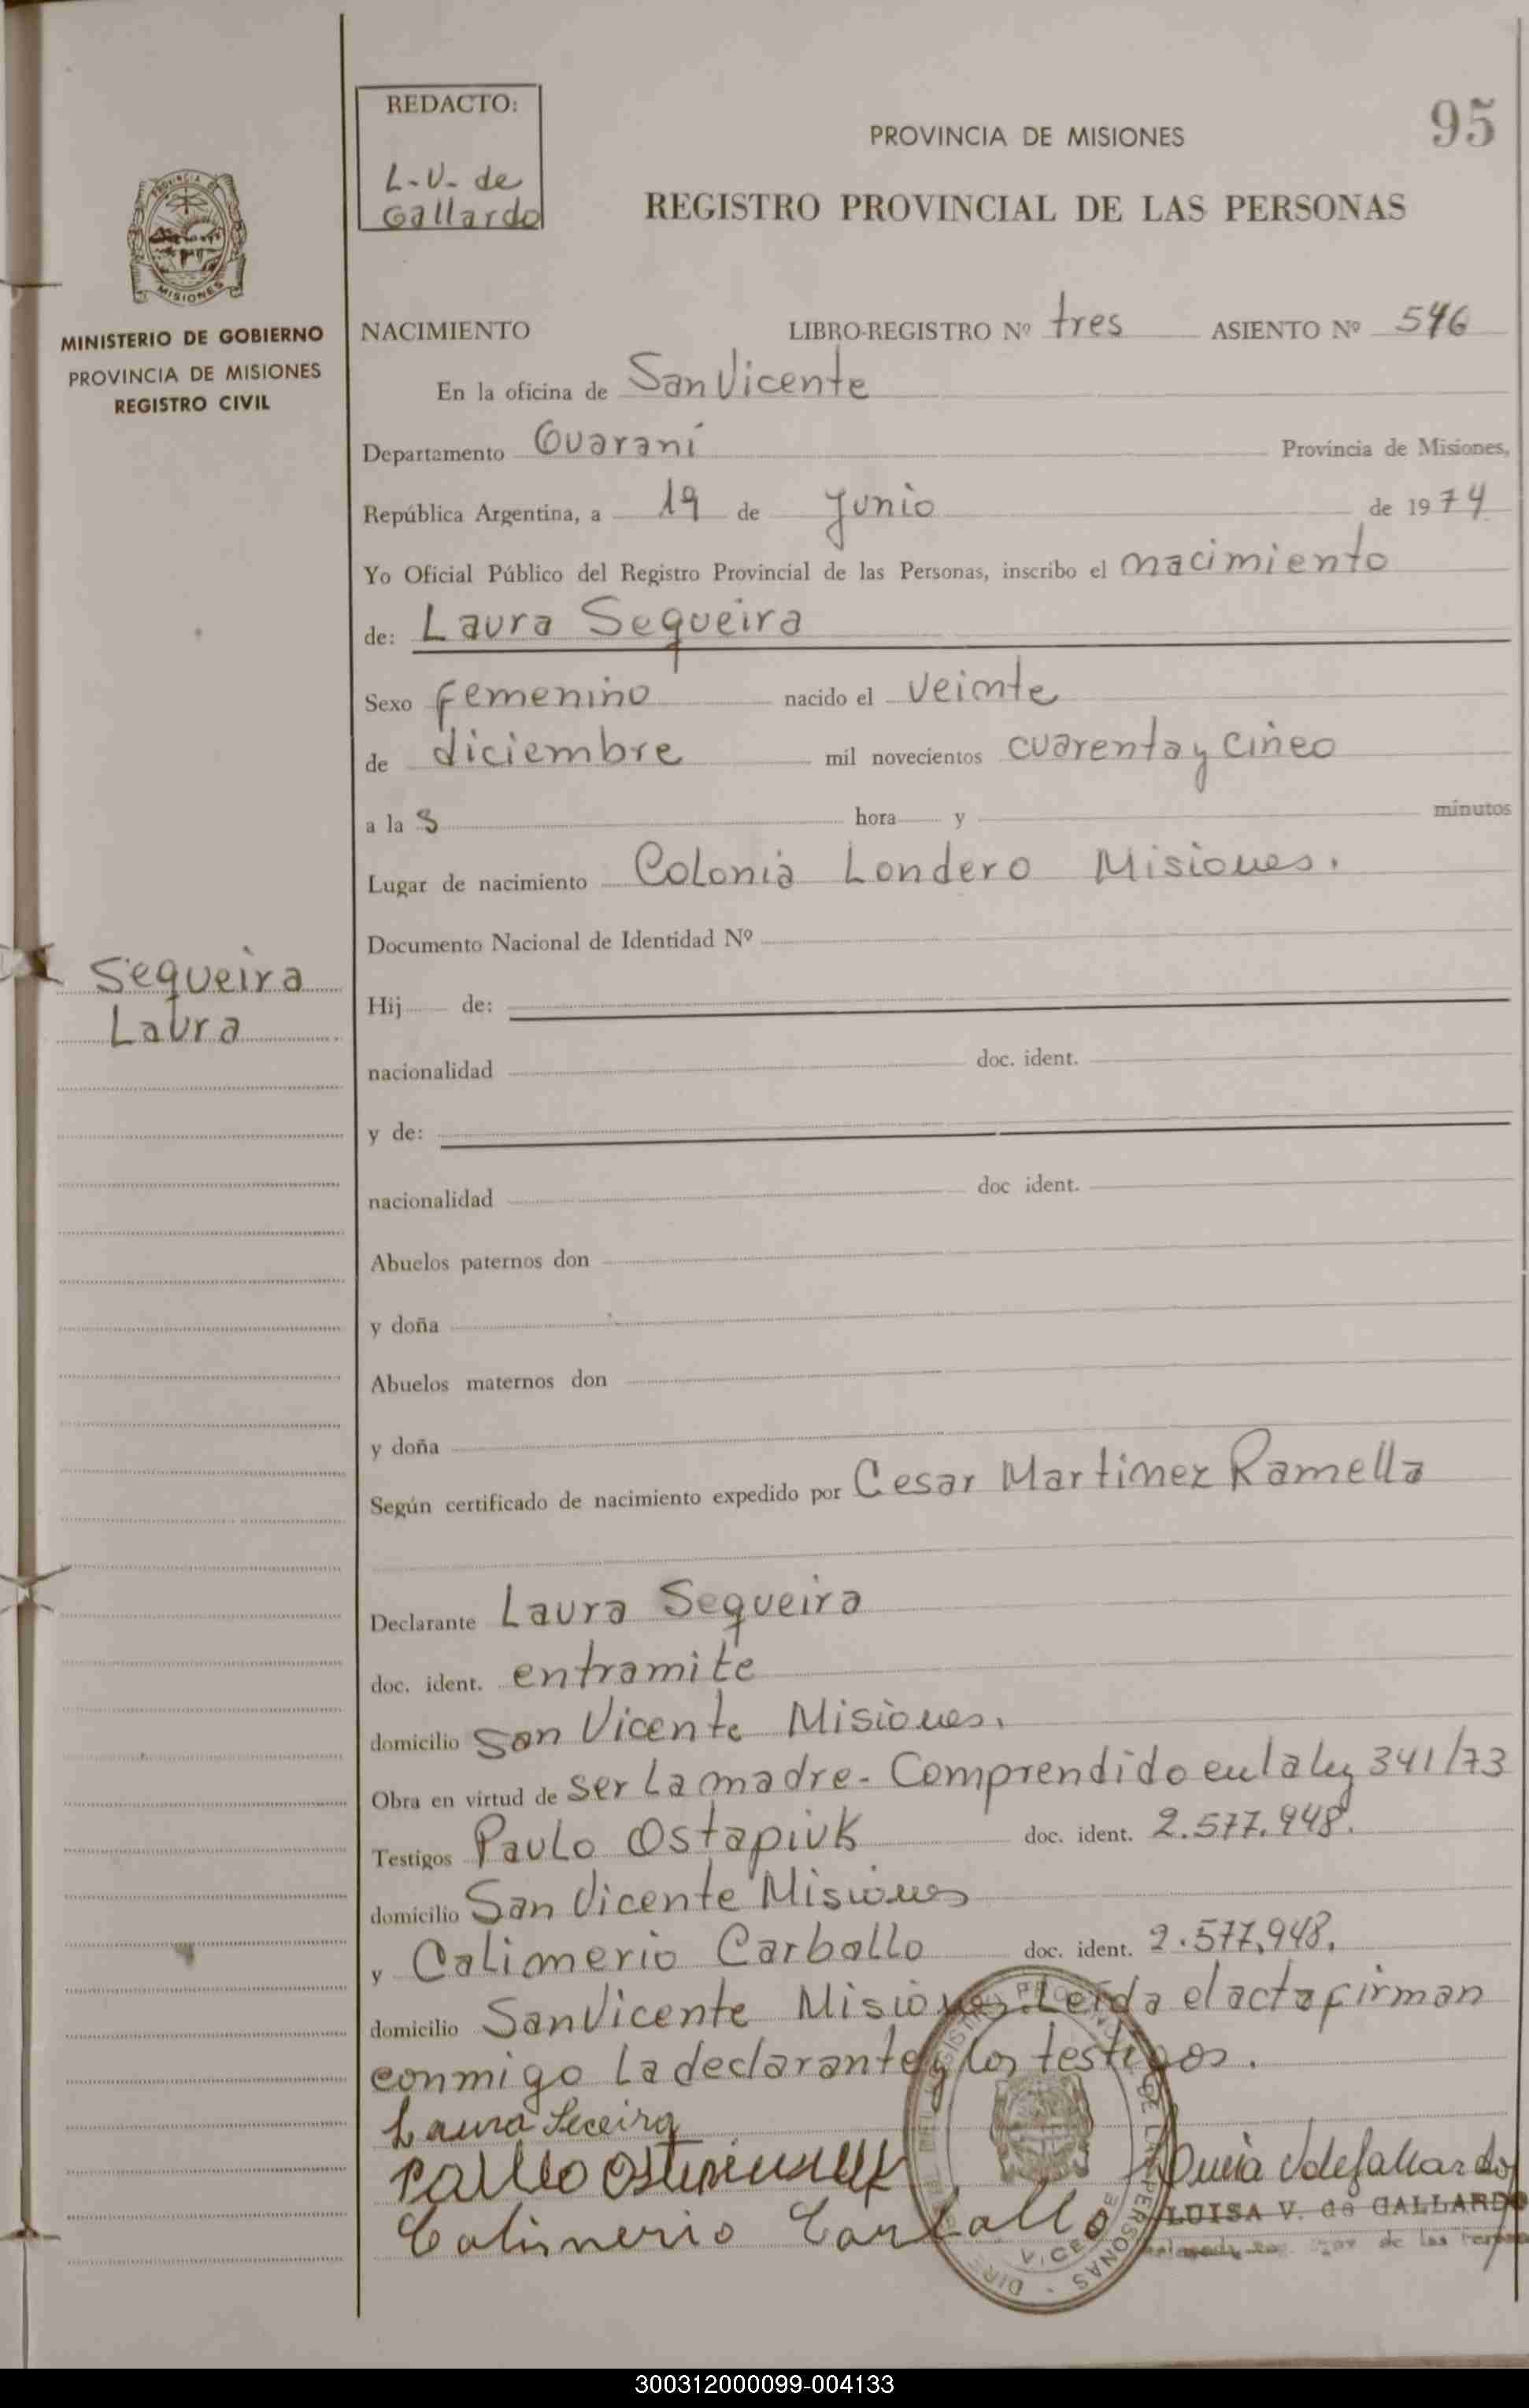 REDACTO:
L.V. de
Gallardo
95
PROVINCIA DE MISIONES
REGISTRO PROVINCIAL DE LAS PERSONAS
MISIONES
MINISTERIO DE GOBIERNO
PROVINCIA DE MISIONES
REGISTRO CIVIL
Sequeira
Laura
NACIMIENTO LIBRO-REGISTRO Nº tres ASIENTO Nº 546
En la oficina de San Vicente
Departamento Guaraní Provincia de Misiones,
República Argentina, a 19 de Junio de 1974
Yo Oficial Público del Registro Provincial de las Personas, inscribo el nacimiento
de: Laura Sequeira
Sexo femenino nacido el veinte
de diciembre mil novecientos cuarenta y cinco
a la 3 hora y minutos
Lugar de nacimiento Colonia Londero Misiones.
Documento Nacional de Identidad Nº
Hij de:
nacionalidad doc. ident.
y de:
nacionalidad doc ident.
Abuelos paternos don
y doña
Abuelos maternos don
y doña
Según certificado de nacimiento expedido por Cesar Martinez Ramella
Declarante Laura Sequeira
doc. ident. en tramite
domicilio San Vicente Misiones.
Obra en virtud de ser la madre - Comprendido en la ley 341/73
Testigos Paulo Ostapiuk doc. ident. 2.577.948.
domicilio San Vicente Misiones
y Calimerio Carballo doc. ident. 2.577.948.
domicilio San Vicente Misiones. Leída el acta firman
conmigo la declarante y los testigos.
Laura Seceira
Calimerio Carballo
LUISA V. de GALLARDO
300312000099-004133